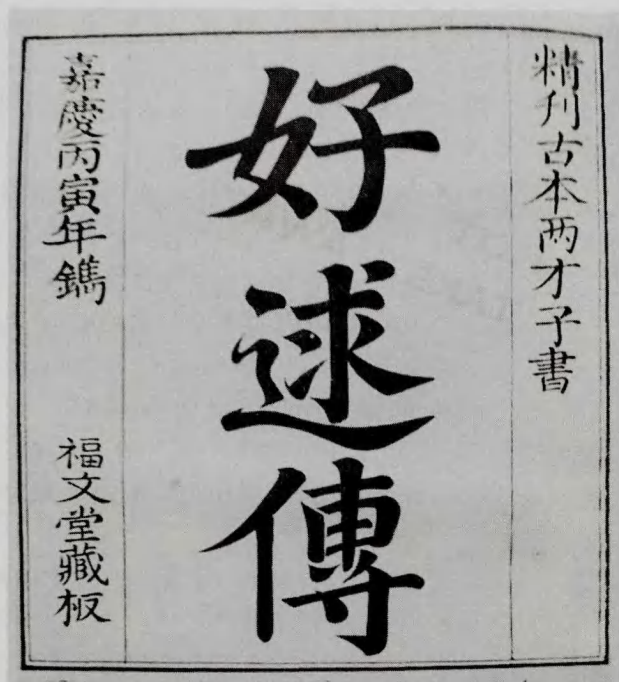 精刊古本两才子書
好逑傳
嘉慶丙寅年鐫
福文堂藏板